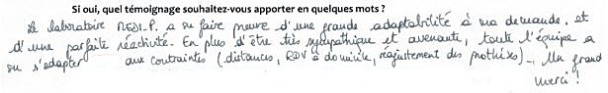 Si oui, quel témoignage souhaitez-vous apporter en quelques mots ?
Le laboratoire RESD.P. a su faire preuve d'une grande adaptabilité à ma demande, et
d'une parfaite réactivité. En plus d'être très sympathique et avenante, toute l'équipe a
su s'adapter aux contraintes (distances, RDV à domicile, réajustement des prothèses)... Un grand
merci !